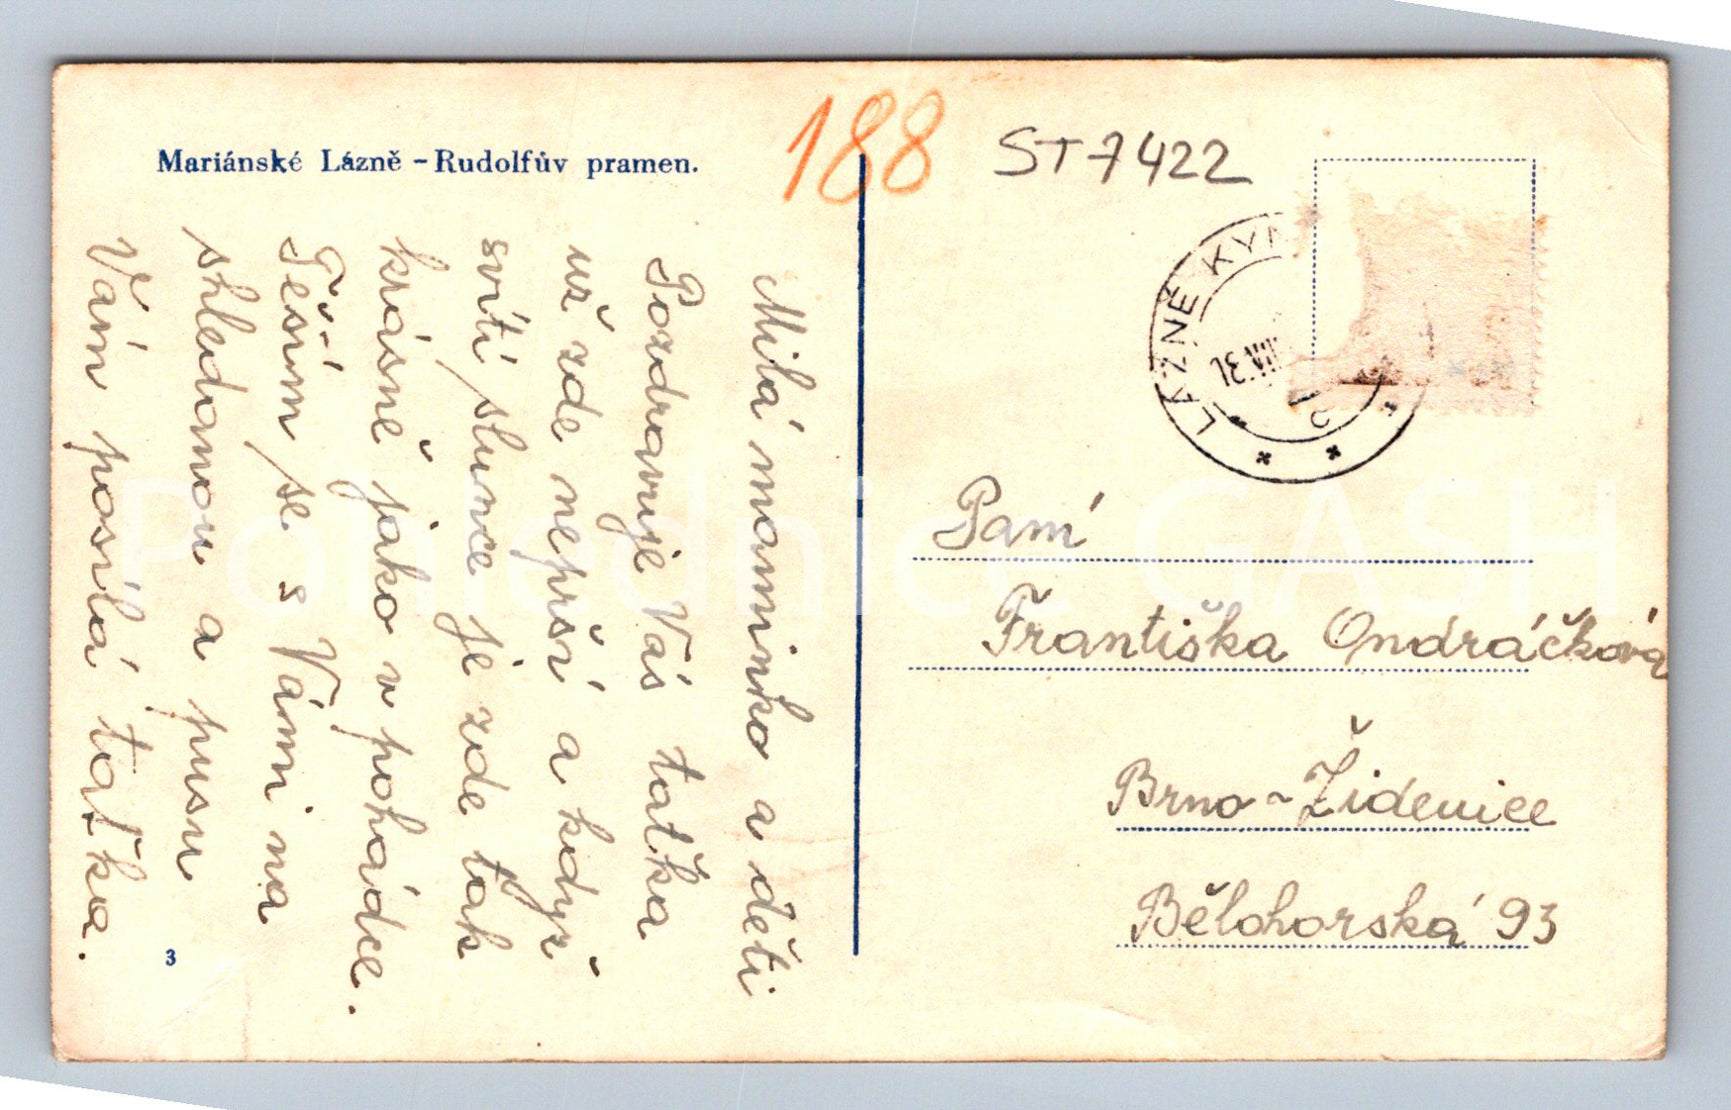 Mariánské Lázně - Rudolfův pramen.
188
ST 7422
LÁZNĚ KYN
Milá maminko a děti
Pozdravuje Vás taťka
už zde neprší a když
svítí slunce je zde tak
krásně jako v pohádce.
Těším se s Vámi na
shledanou a pusu
Vám posílá taťka.
3
Paní
Františka Ondráčková
Brno-Židenice
Bělohorská 93
Pohlednice GASH